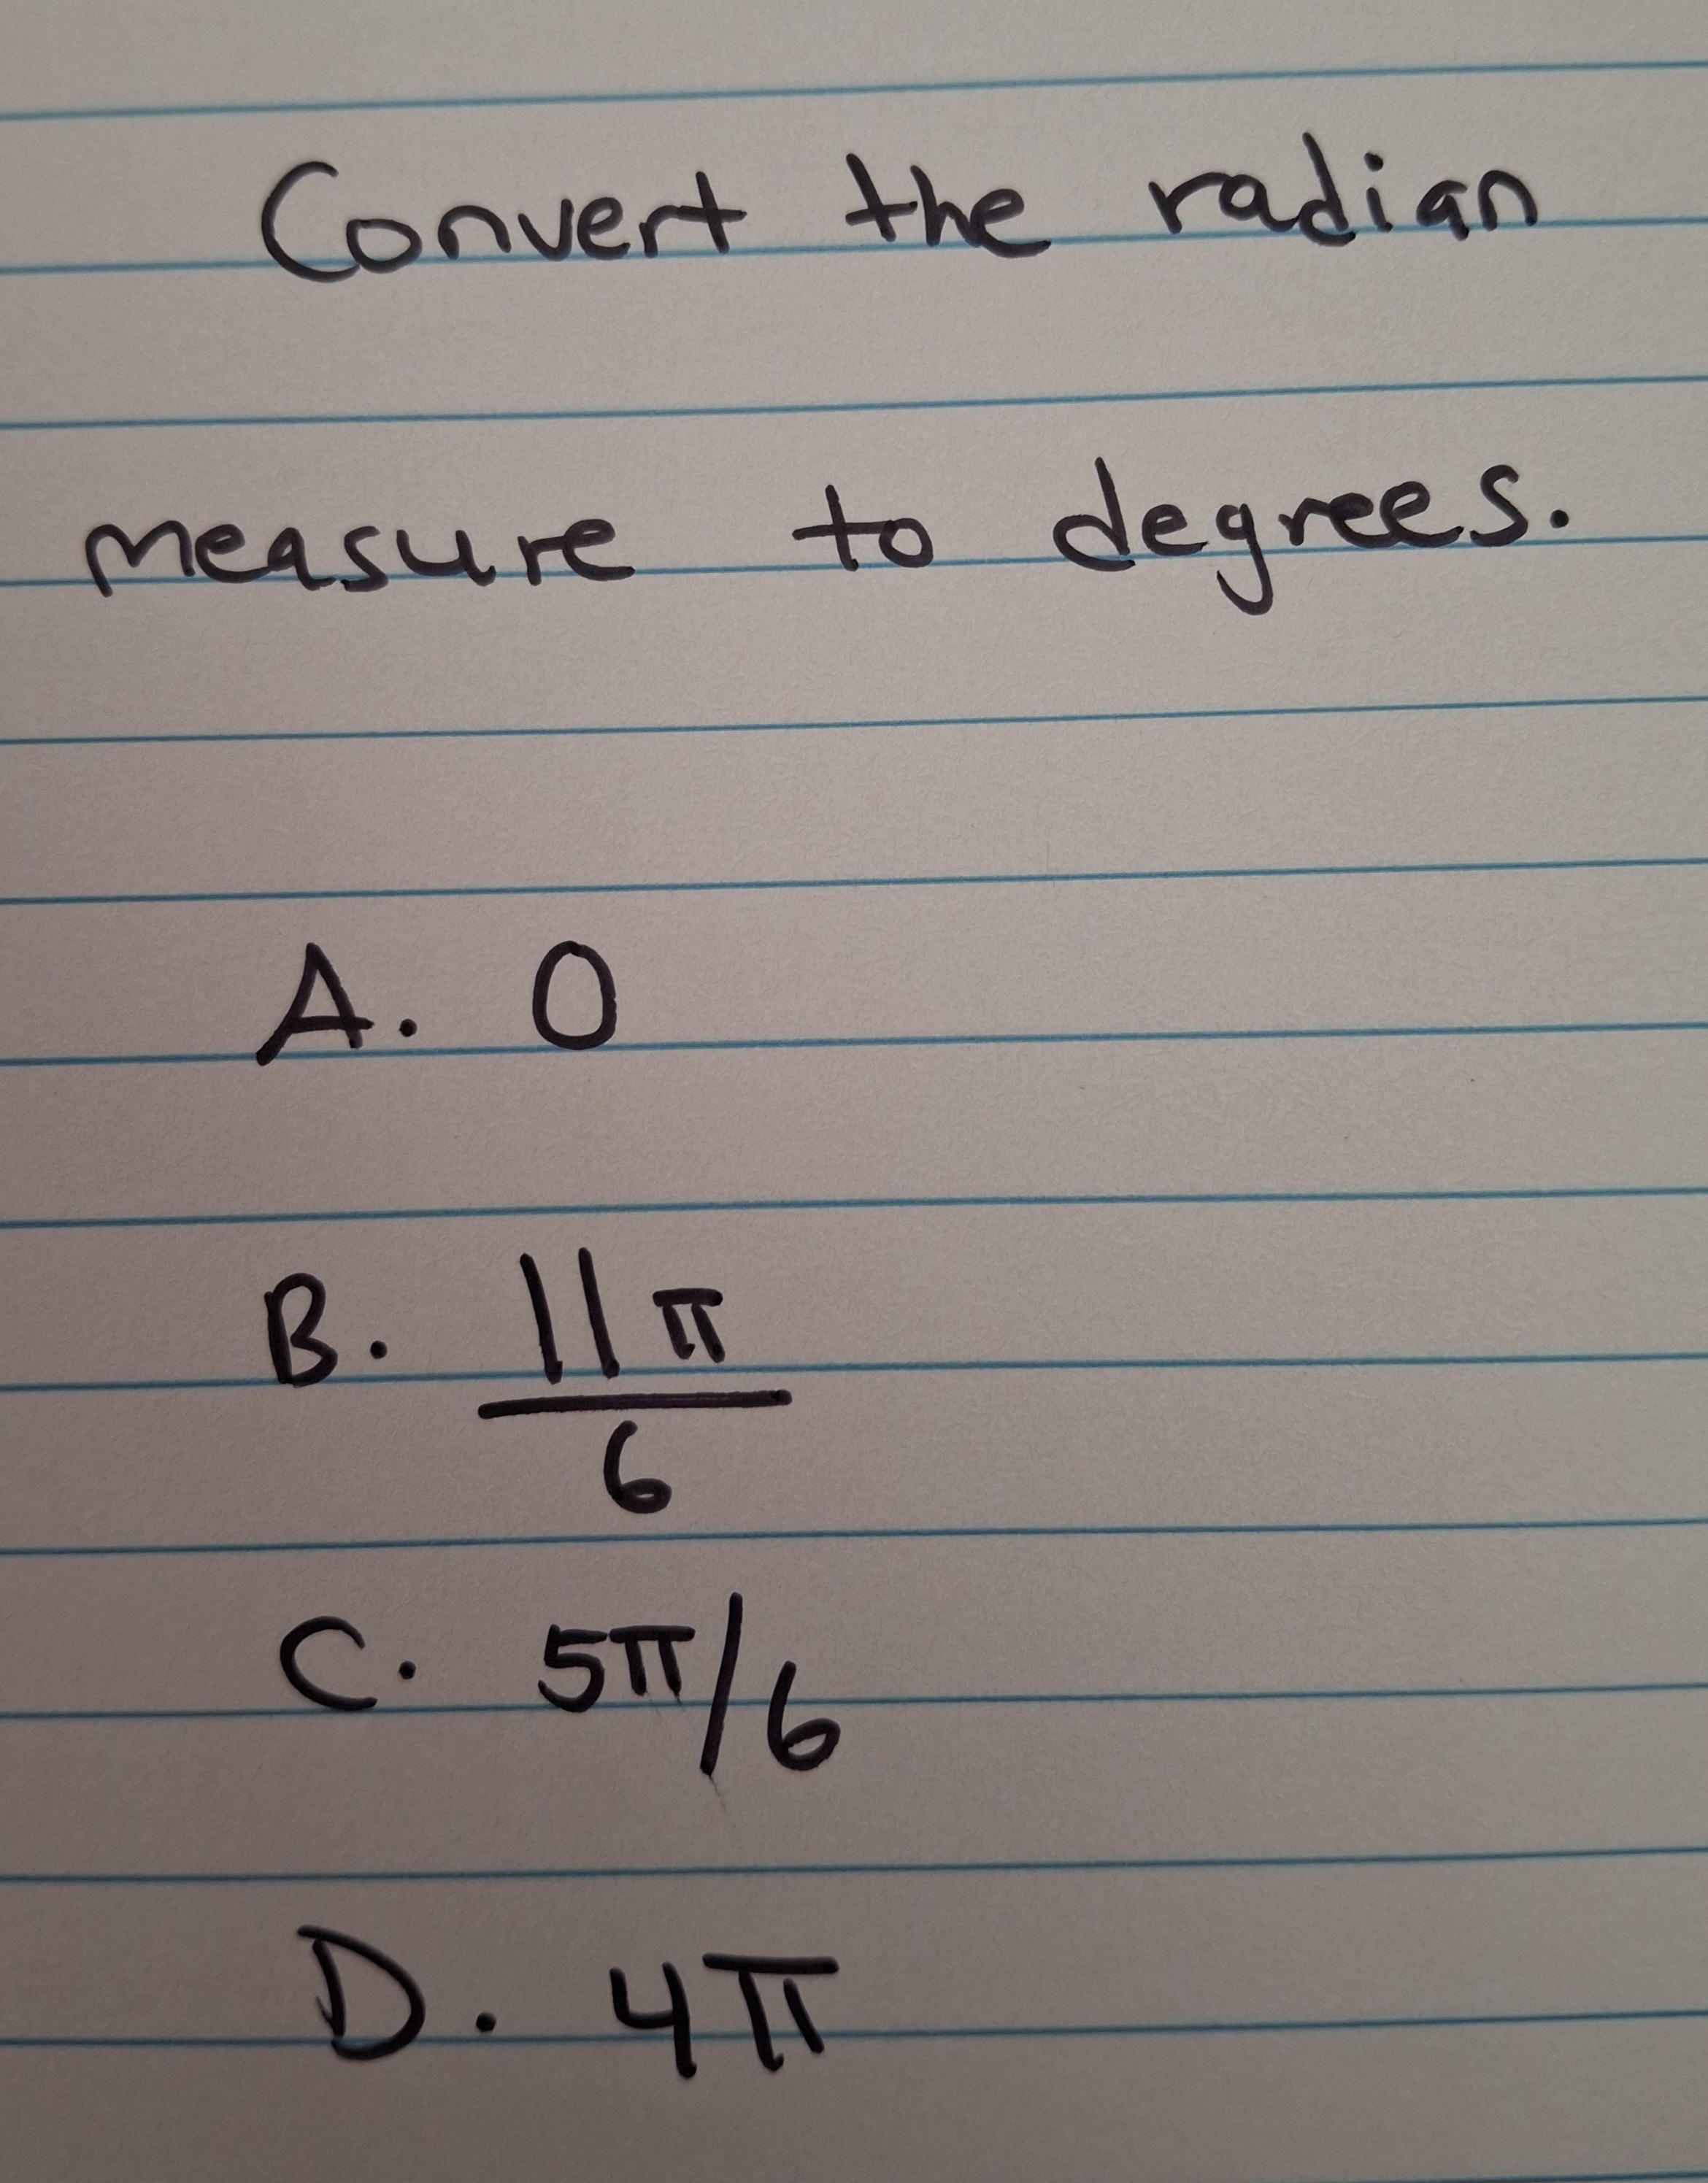 Convert the radian
measure to degrees.
A. 0
B. 11π
6
C. 5π/6
D. 4π